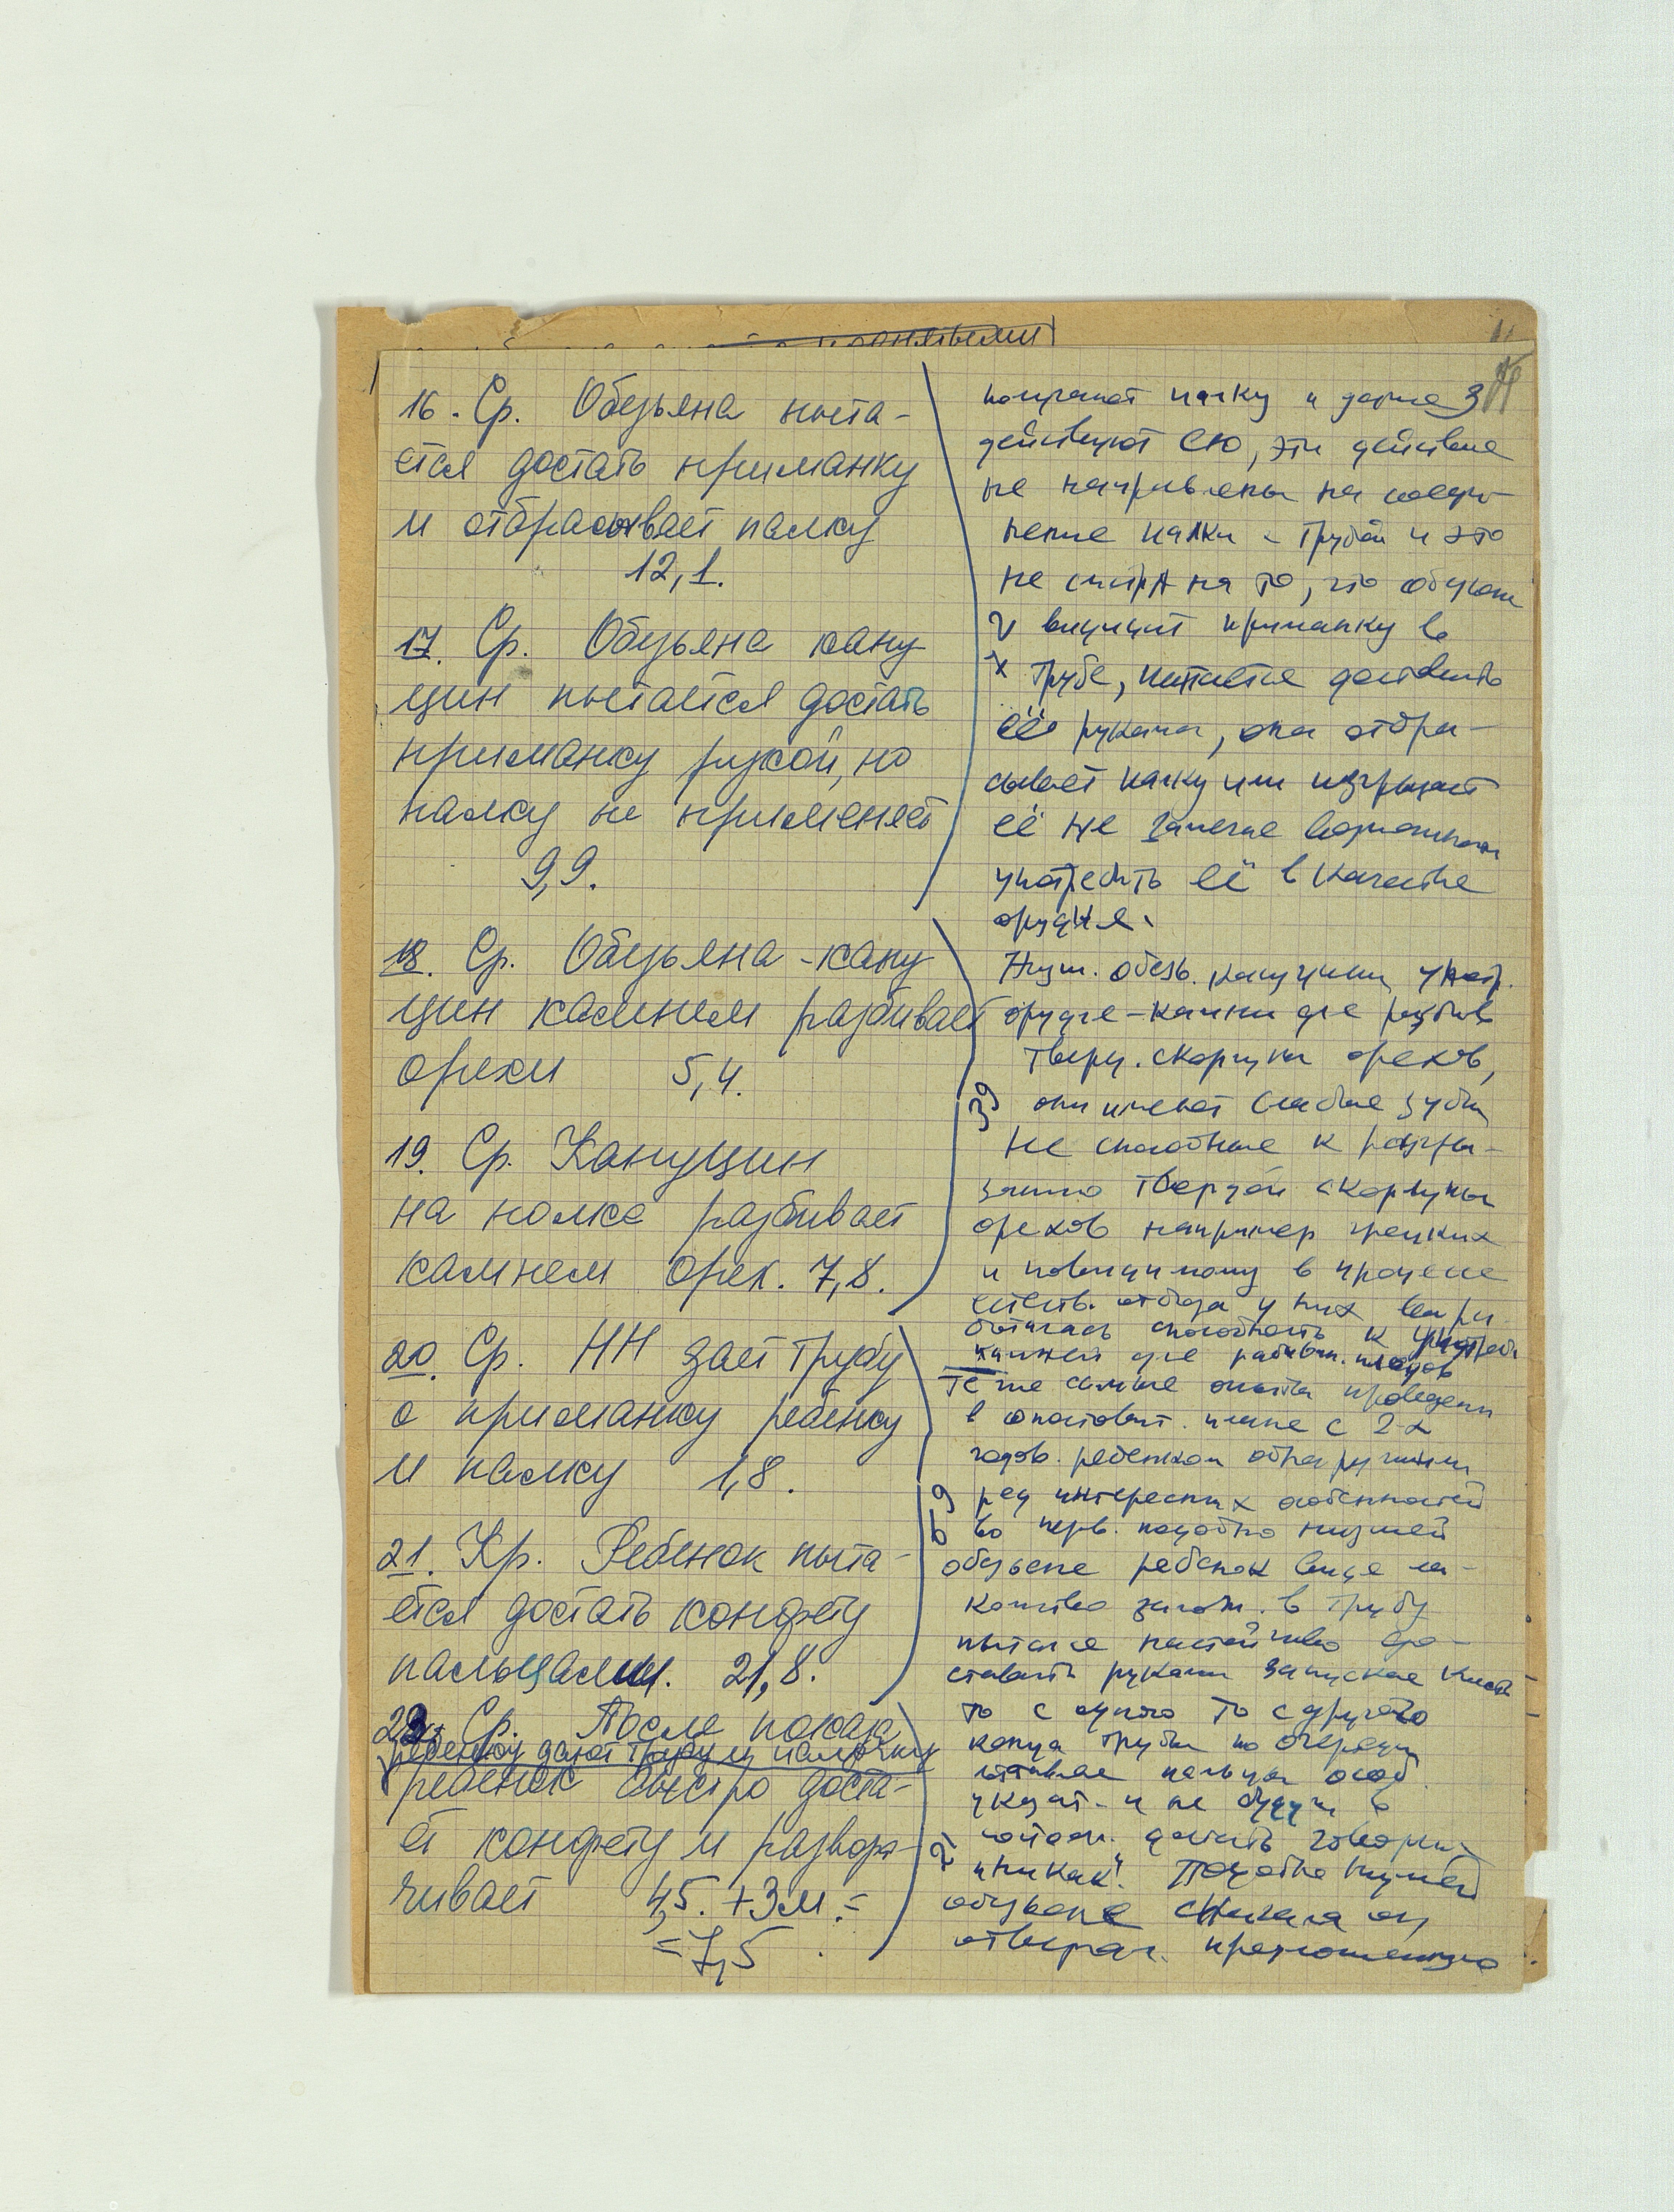 16. Ср. Обезьяна пыта-
ется достать приманку
и отбрасывает палку
12,1.
17. Ср. Обезьяна капу
цин пытается достать
приманку рукой, но
палку не применяет
9,9.
18. Ср. Обезьяна-капу
цин камнем разбивает
орехи 5,4.
19. Ср. Капуцин
на полке разбивает
камнем орех. 7,8.
20. Ср. НН дает трубу
с приманку ребенку
и палку 1,8.
21. Кр. Ребенок пыта-
ется достать конфету
пальцами. 21,8.
22. Ср. После показ
ребенку дают трубу и палочку
ребенок быстро доста-
ет конфету и развора-
чивает 4,5. + 3м. =
= 7,5
палку и даже
действуют ею, эти действие
не направлены на соеди-
нение палки с трубой и это
не смотря на то, что
видит приманку в
трубе, пытается доставать
её руками, она отбра-
сывает палку или изгрызает
её не замечае возможности
употребить её в качестве
орудия.
Низш. обезь. капуцины употр.
орудие-камни для разбив
тверд. скорлупы орехов,
39 они имеют слабые зубы
не способные к разгры-
занию твердой скорлупы
орехов например грецких
и повидимому в процессе
естеств. отбора у них выра
боталась способность к употреб
камней для разбив. плодов
Те же самые опыты проведены
в сопоставит. плане с 2-х
годов. ребенком обнаружили
ряд интересных особенностей
59 во перв. подобно низшей
обезьяне ребенок видя ла-
комство в трубу
пытался настойчиво до-
ставать руками запуская кисть
то с одного то с другого
конца трубы по очереди
пальцы особ.
указат. и не будучи в
достать говорил
"никак". Подобно низшей
обезьяне сначала он
отверга. предложенную